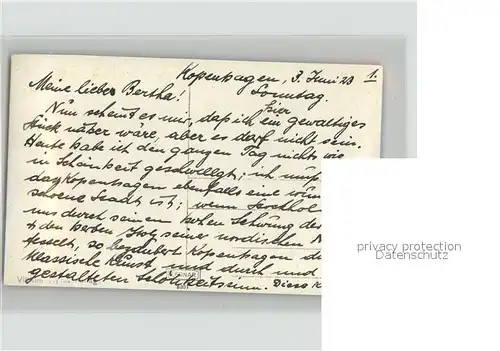 Kopenhagen, 3. Juni 28 1.
Sonntag.
Meine lieber Bertha!
hier
Nun scheint es mir, daß ich ein gewaltiges
Stück näher wäre, aber es darf nicht sein.
Heute habe ich den ganzen Tag nichts wie
in Schönheit geschwelgt; ich muß
daß Kopenhagen ebenfalls eine
schöne Stadt ist; wenn Stockhol
uns durch seinen hohen Schwung des
den herben Stolz seiner nordischen N
fesselt, so bezaubert Kopenhagen d
klassische Kunst und durch und
gestalteten Schönheitssinn. Diese K
privacy protection
Datenschutz